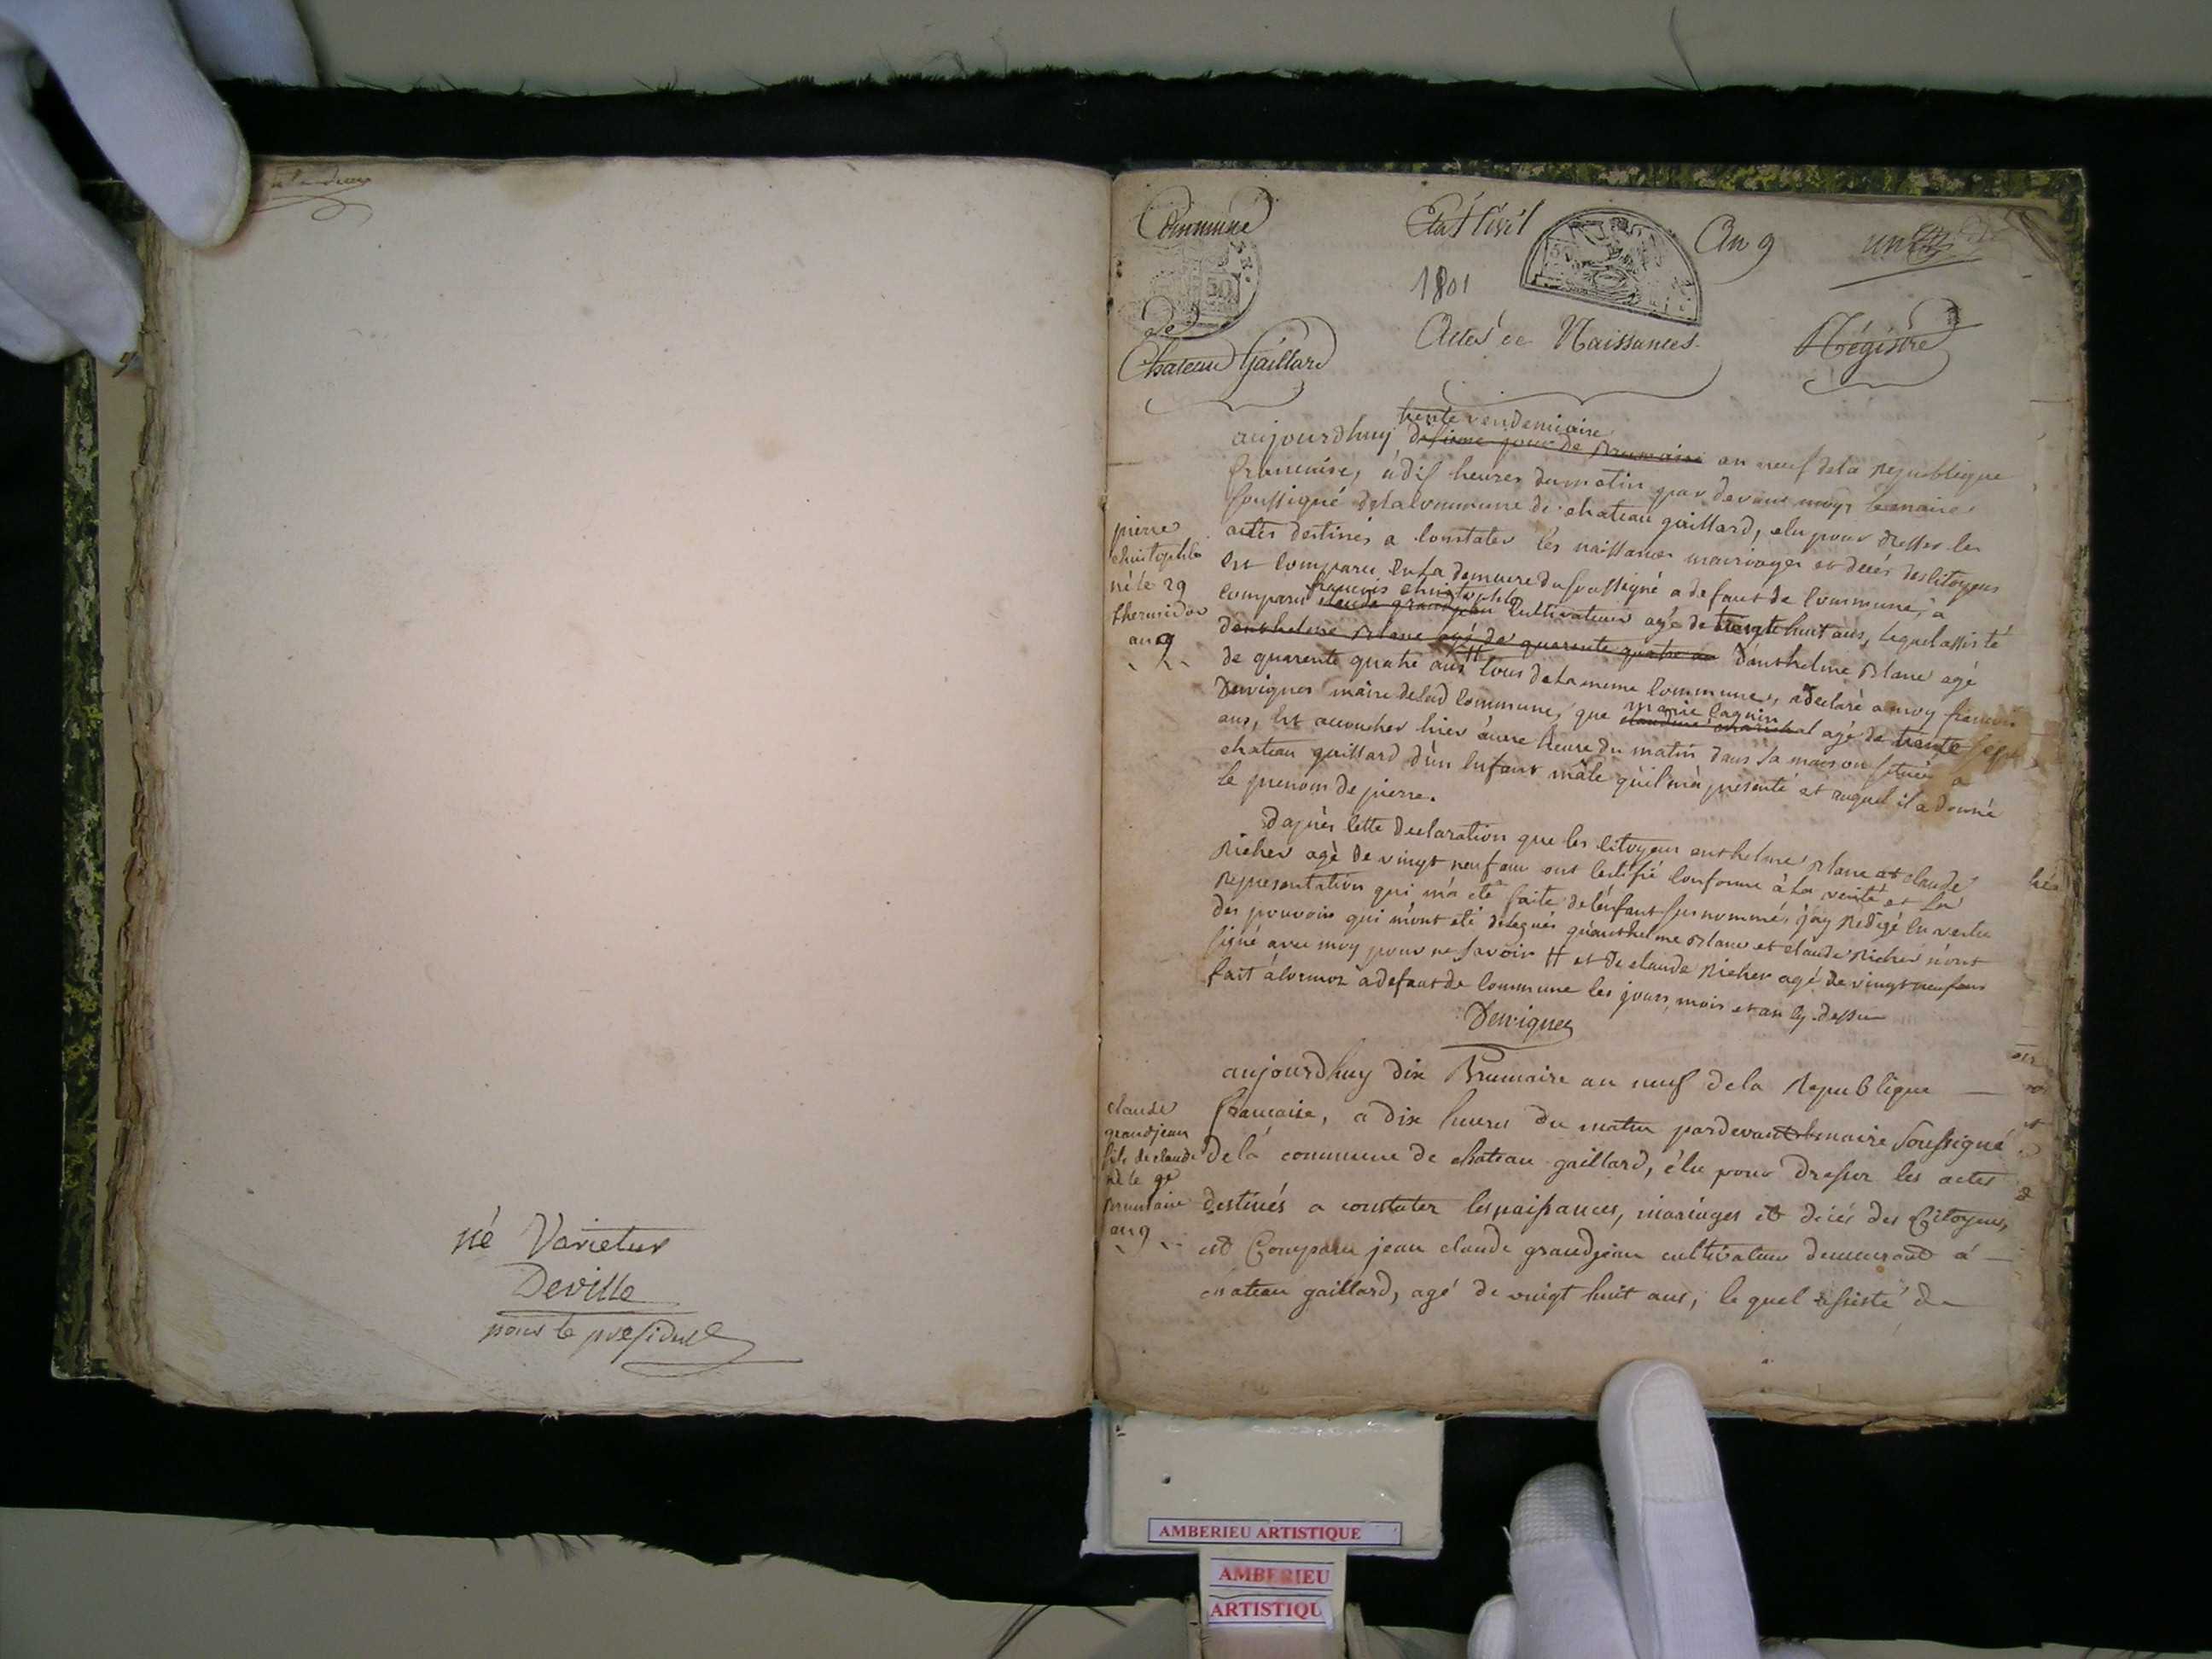 né Varietur
Deville
pour le president
Commune
de
Chateau Gaillard
Etat Civil
1801
Actes de Naissances
An 9
un
Régistre
trente vendemiaire
aujourdhuy dixieme jour de Brumaire an neuf dela Republique
francaise, à dix heures du matin par devant moy le maire
soussigné delacommune de chateau gaillard, elu pour dresser les
actes destinés a constater les naissances mariages et decés des citoyens
est comparu en la demeure du soussigné a defaut de commune, a
françois christophle
comparu claude grandjean cultivateur agé de trente huit ans, lequel assisté
danthelme Blanc agé de quarente quatre an danthelme Blanc agé
de quarente quatre ans # tous dela meme commune, a declaré a moy francois
Dervignes maire delad commune, que
marie
claudine marichal agé de trente sept
ans, est accoucher hier à une heure du matin dans sa maison située a
chateau gaillard d'un enfant mâle qu'il m'a presenté et auquel il a donné
le prenom de pierre.
d'après cette declaration que les citoyens anthelme Blanc et claude
Richer agé de vingt neuf ans ont certifié conforme à la verité et la
representation qui m'a eté faite de l'enfant sus nommé, j'ay redigé en vertu
des pouvoirs qui m'ont eté delegués qu'anthelme Blanc et claude Richer n'ont
signé avec moy pour ne savoir # et de claude Richer agé de vingt neuf ans
fait à a defaut de commune les jours, mois et an cy dessu
pierre
christophle
né le 29
thermidor
an 9
aujourdhuy dix Brumaire an neuf dela Republique
francaise, a dix heures du matin pardevant le maire soussigné
dela commune de chateau gaillard, élu pour dresser les actes
destinés a constater les naissances, mariages et décés des Citoyens,
est Comparu jean claude grandjean cultivateur demeurant à
chateau gaillard, agé de vingt huit ans, le quel assisté de
claude
grandjean
fils de claude
né le 9e
Brumaire
an 9
AMBERIEU ARTISTIQUE
AMBERIEU
ARTISTIQU